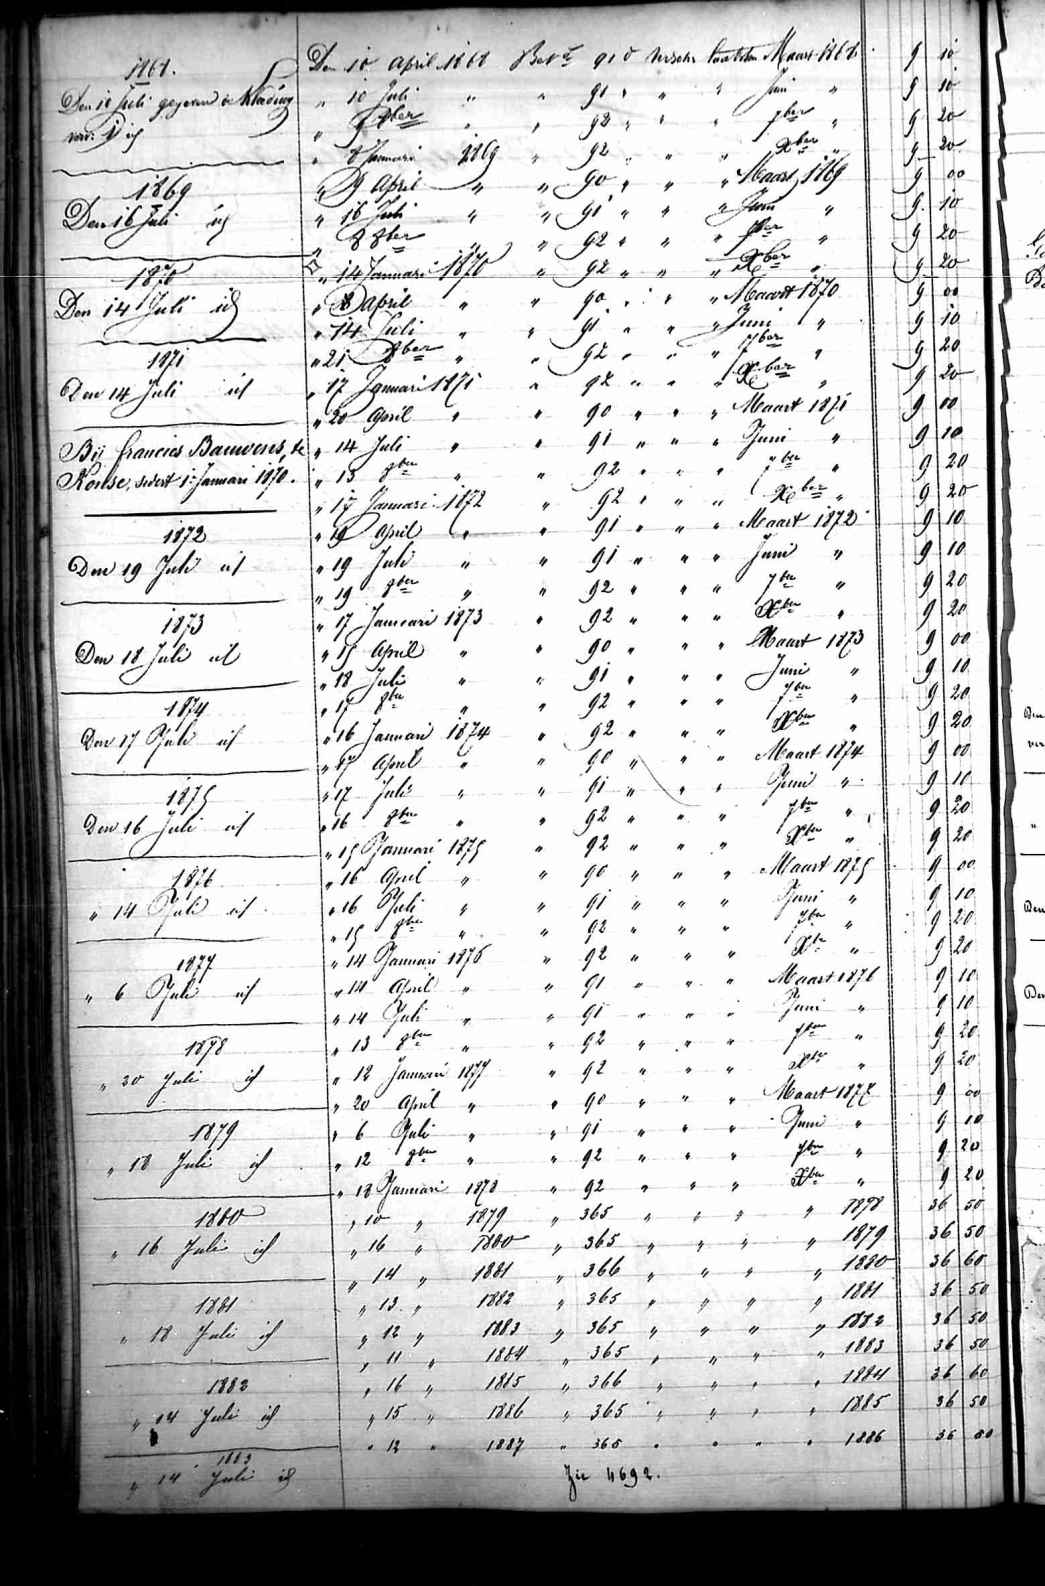 1868.
Den 10 Juli gegeven de kleding
Den 10 April 1868 Bet. 91 d versch. laatsten Maart 1868 9 10
" 10 Juli " " 91 " " " Juni " 9 10
" 9 8ber " " 92 " " " 7ber " 9 20
" 8 Januari 1869 " 92 " " " Xber " 9 20
" 9 April " " 90 " " " Maart 1869 9 00
" 16 Juli " " 91 " " " Juni " 9 10
" 8 8ber " " 92 " " " 7ber " 9 20
" 14 Januari 1870 " 92 " " " Xber " 9 20
" 8 April " " 90 " " " Maart 1870 9 00
" 14 Juli " " 91 " " " Juni " 9 10
" 21 8ber " " 92 " " " 7ber " 9 20
" 17 Januari 1871 " 92 " " " Xber " 9 20
" 20 April " " 90 " " " Maart 1871 9 00
" 14 Juli " " 91 " " " Juni " 9 10
" 13 8ber " " 92 " " " 7ber " 9 20
" 17 Januari 1872 " 92 " " " Xber " 9 20
" 19 April " " 91 " " " Maart 1872 9 10
" 19 Juli " " 91 " " " Juni " 9 10
" 19 8ber " " 92 " " " 7ber " 9 20
" 17 Januari 1873 " 92 " " " Xber " 9 20
" 15 April " " 90 " " " Maart 1873 9 00
" 18 Juli " " 91 " " " Juni " 9 10
" 17 8ber " " 92 " " " 7ber " 9 20
" 16 Januari 1874 " 92 " " " Xber " 9 20
" 17 April " " 90 " " " Maart 1874 9 00
" 17 Juli " " 91 " " " Juni " 9 10
" 16 8ber " " 92 " " " 7ber " 9 20
" 15 Januari 1875 " 92 " " " Xber " 9 20
" 16 April " " 90 " " " Maart 1875 9 00
" 16 Juli " " 91 " " " Juni " 9 10
" 15 8ber " " 92 " " " 7ber " 9 20
" 14 Januari 1876 " 92 " " " Xber " 9 20
" 14 April " " 91 " " " Maart 1876 9 10
" 14 Juli " " 91 " " " Juni " 9 10
" 13 8ber " " 92 " " " 7ber " 9 20
" 12 Januari 1877 " 92 " " " Xber " 9 20
" 20 April " " 90 " " " Maart 1877 9 00
" 6 Juli " " 91 " " " Juni " 9 10
" 12 8ber " " 92 " " " 7ber " 9 20
" 18 Januari 1878 " 92 " " " Xber " 9 20
" 10 " 1879 " 365 " " " " 1878 36 50
" 16 " 1880 " 365 " " " " 1879 36 50
" 14 " 1881 " 366 " " " " 1880 36 60
" 13 " 1882 " 365 " " " " 1881 36 50
" 12 " 1883 " 365 " " " " 1882 36 50
" 11 " 1884 " 365 " " " " 1883 36 50
" 16 " 1885 " 366 " " " " 1884 36 60
" 15 " 1886 " 365 " " " " 1885 36 50
" 12 " 1887 " 365 " " " " 1886 36 00
Zie 4692.
1869
Den 16 Juli id
1870
Den 14 Juli id
1871
Den 14 Juli id
Bij Francies Bauwens, te
Ronse, sedert 1 Januari 1870.
1872
Den 19 Juli id
1873
Den 18 Juli id
1874
Den 17 Juli id
1875
Den 16 Juli id
1876
" 14 Juli id
1877
" 6 Juli id
1878
" 20 Juli id
1879
" 18 Juli id
1880
" 16 Juli id
1881
" 18 Juli id
1882
" 14 Juli id
1883
" 14 Juli id